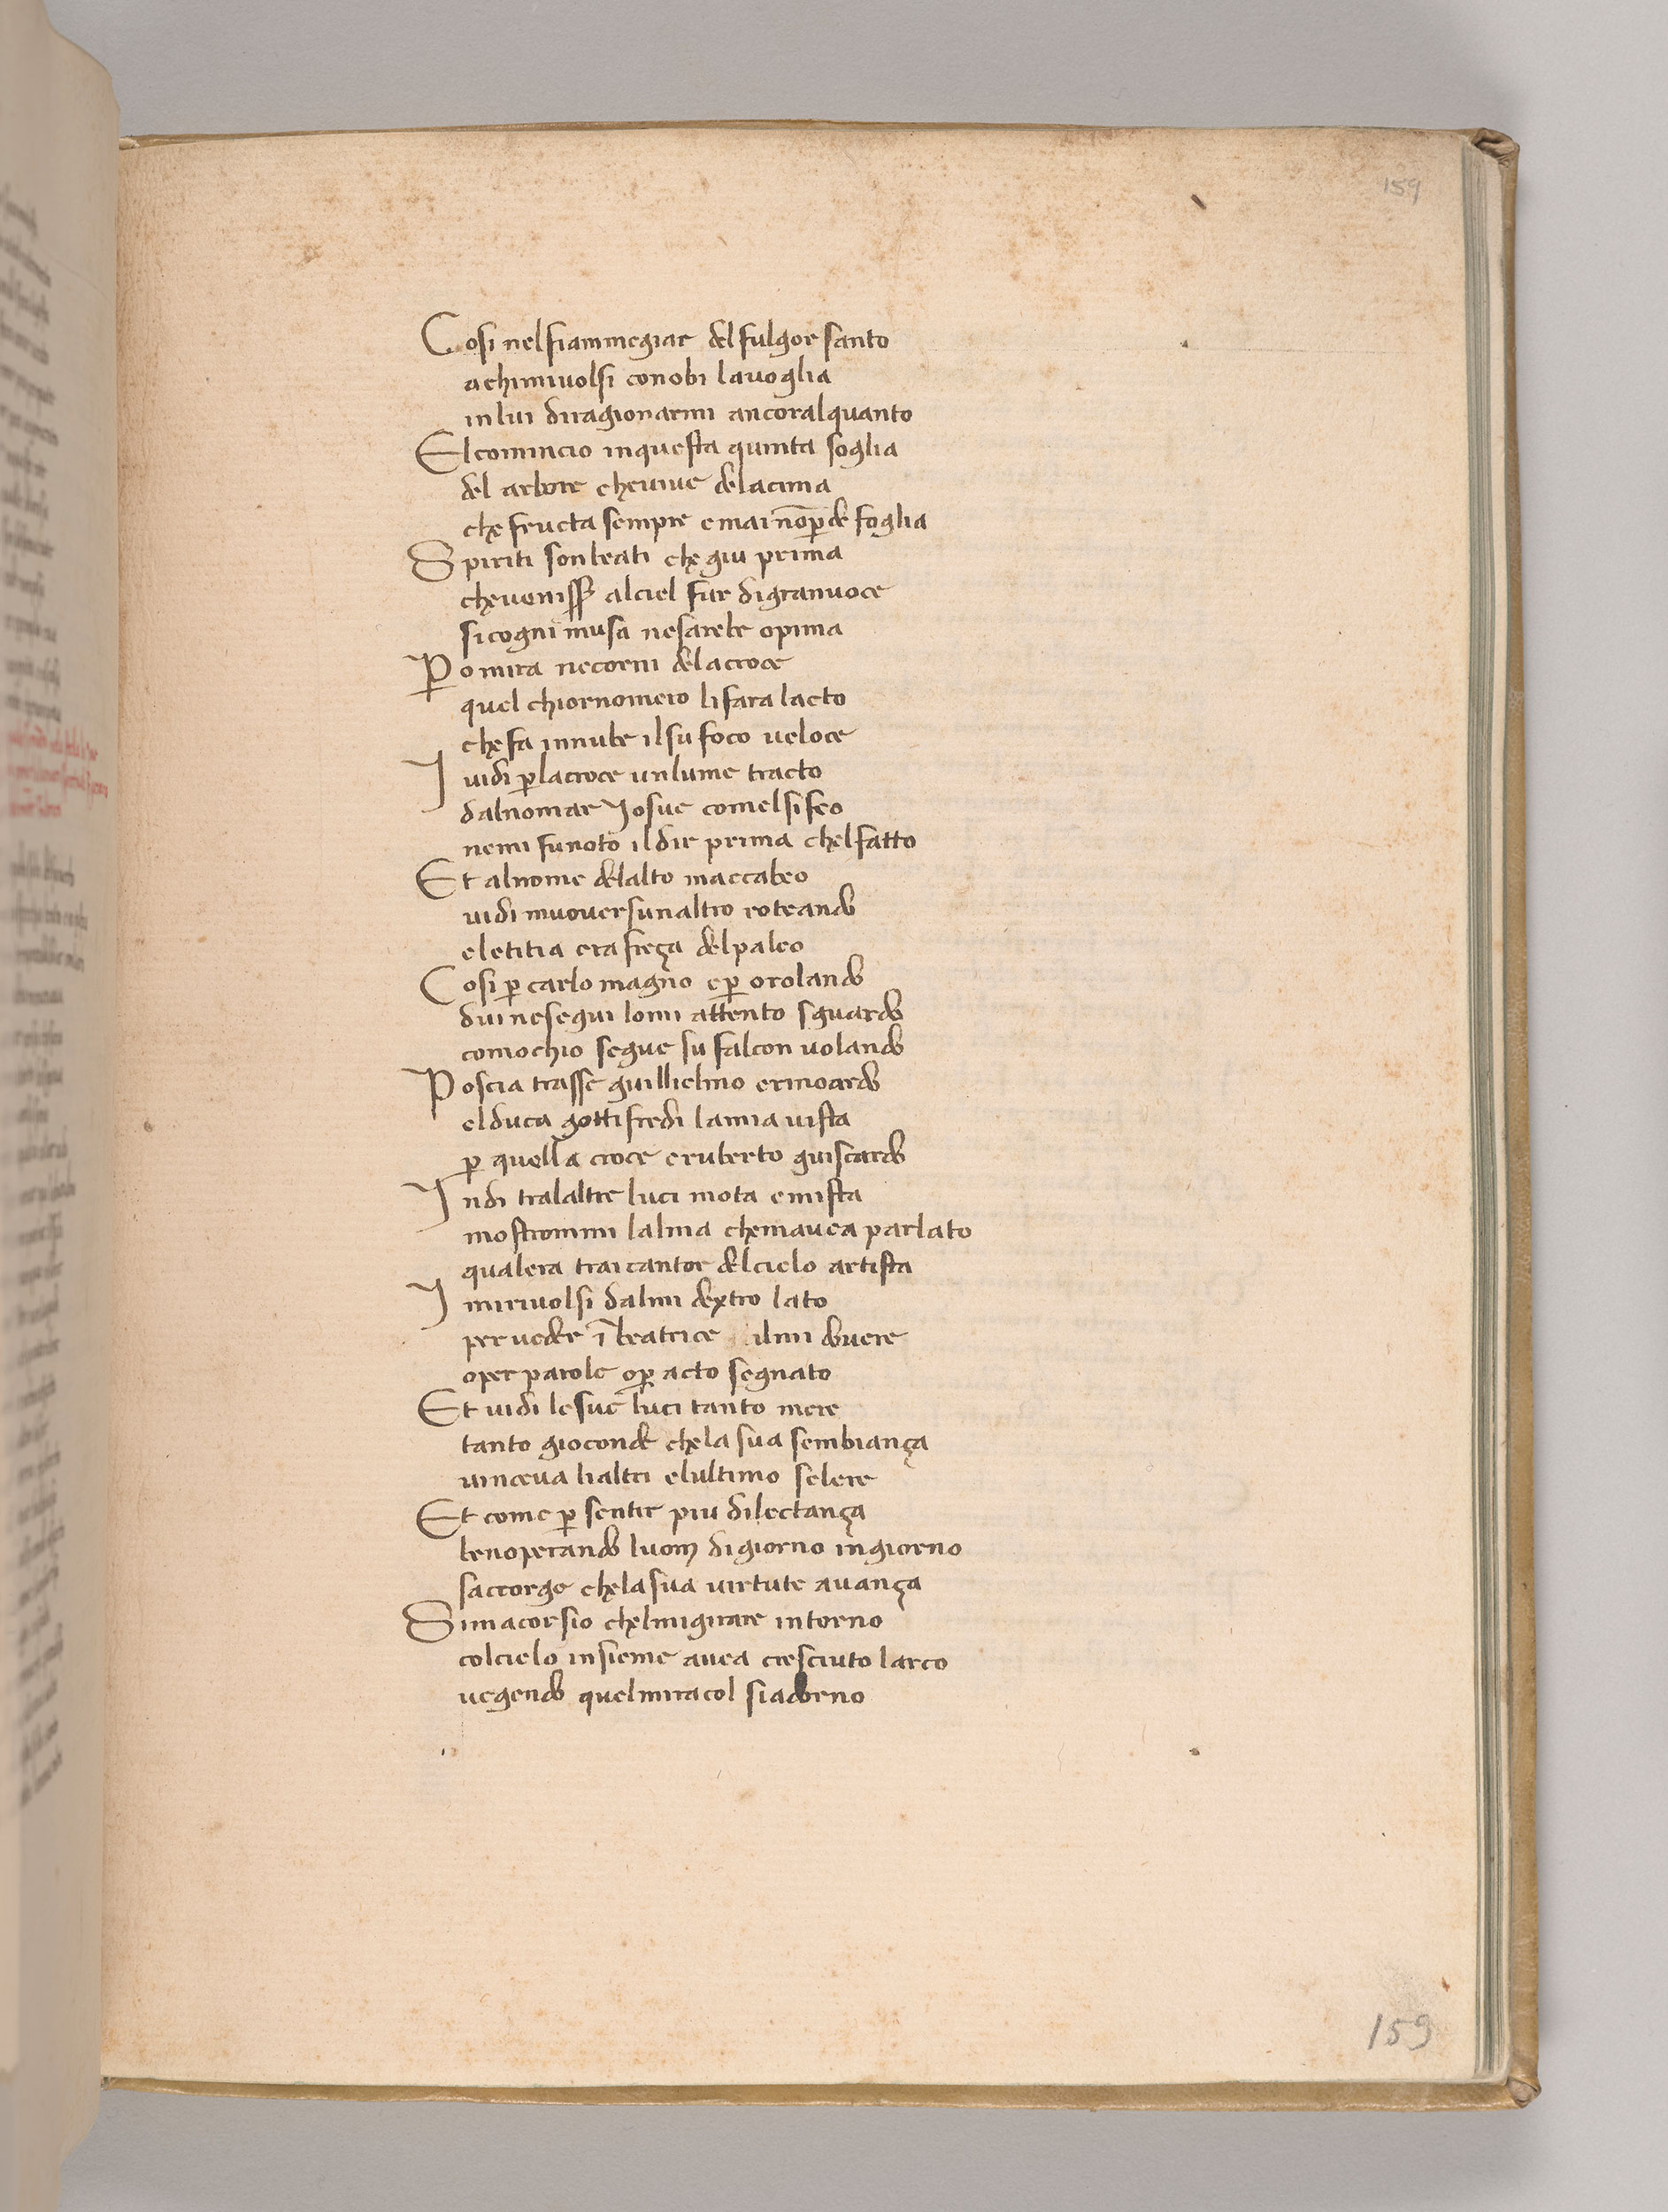 159
Cosi nel fiammegiar del fulgor santo
achimiuolsi conobi lauoglia
in lui diragionarmi ancoralquanto
El comincio inquesta quinta soglia
del arbore cheuiue delacima
che fructa sempre e mai nõ ꝑde foglia
Spiriti son beati che giu prima
che uenisser alciel fur digranuoce
sicogni musa nesarebe opima
Po mira necorni delacroce
quel chiornomero li fara lacto
che fa innube il su foco ueloce
I uidi ꝑ lacroce un lume tracto
dal nomar Iosue comel si feo
nemi funoto il dir prima chel fatto
Et alnome delalto maccabeo
uidi muouersunaltro roteando
e letitia era freça del paleo
Cosi ꝑ carlo magno e ꝑ orolando
dui nesegui lomi attento sguardo
comochio segue su falcon uolando
Poscia trasse guillielmo ermoardo
el duca gottifredi lamia uista
ꝑ quella croce e ruberto guiscardo
Indi tralaltre luci mota e mista
mostrommi lalma chemauea parlato
qualera trai cantor del cielo artista
I miriuolsi dalmi dextro lato
per ueder ĩ beatrice ilmi douere
oper parole o ꝑ acto segnato
Et uidi le sue luci tanto mere
tanto gioconde che la sua sembiança
uinceua lialtri elultimo solere
Et come ꝑ sentir piu dilectança
ben operando luom di giorno in giorno
saccorge che la sua uirtute auança
Simacorsio chelmigirare intorno
colcielo insieme auea cresciuto larco
uegendo quel miracol si adorno
159